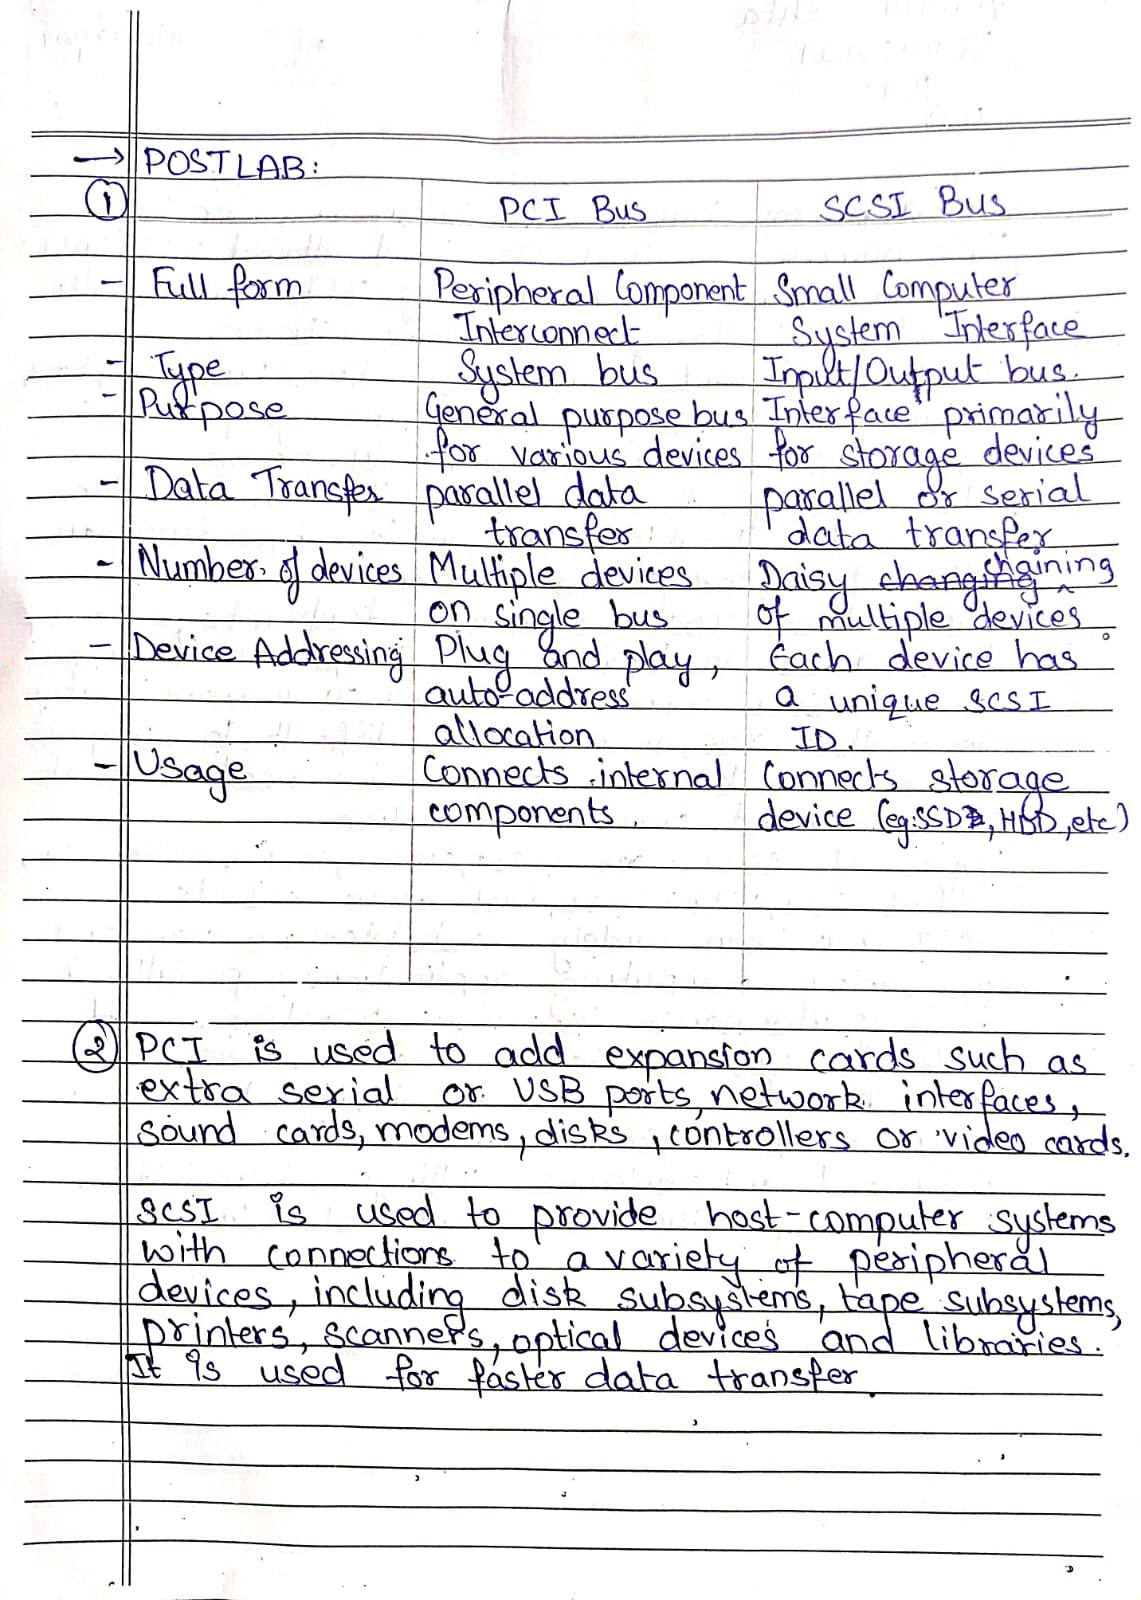 → POSTLAB:
① PCI Bus SCSI Bus
- Full form Peripheral Component Small Computer
Interconnect System Interface
- Type System bus Input/Output bus.
- Purpose General purpose bus Interface primarily
for various devices for storage devices
- Data Transfer parallel data parallel or serial
transfer data transfer
- Number of devices Multiple devices Daisy changing chaining
on single bus of multiple devices
- Device Addressing Plug and play, Each device has
auto-address a unique SCSI
allocation ID.
- Usage Connects internal Connects storage
components. device (eg:SSD, HDD, etc)
② PCI is used to add expansion cards such as
extra serial or USB ports, network interfaces,
sound cards, modems, disks, controllers or video cards.
SCSI is used to provide host-computer systems
with connections to a variety of peripheral
devices, including disk subsystems, tape subsystems,
printers, scanners, optical devices and libraries.
It is used for faster data transfer.